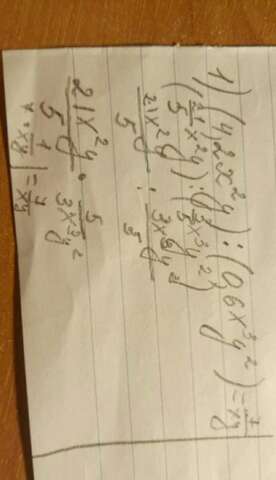 1) (4,2x²y) : (0,6x³y²) = 7/xy
(21/5 x²y) : (3/5 x³y²)
21x²y/5 : 3x³y²/5
21x²y/5 · 5/3x³y²
7 · 1/xy = 7/xy